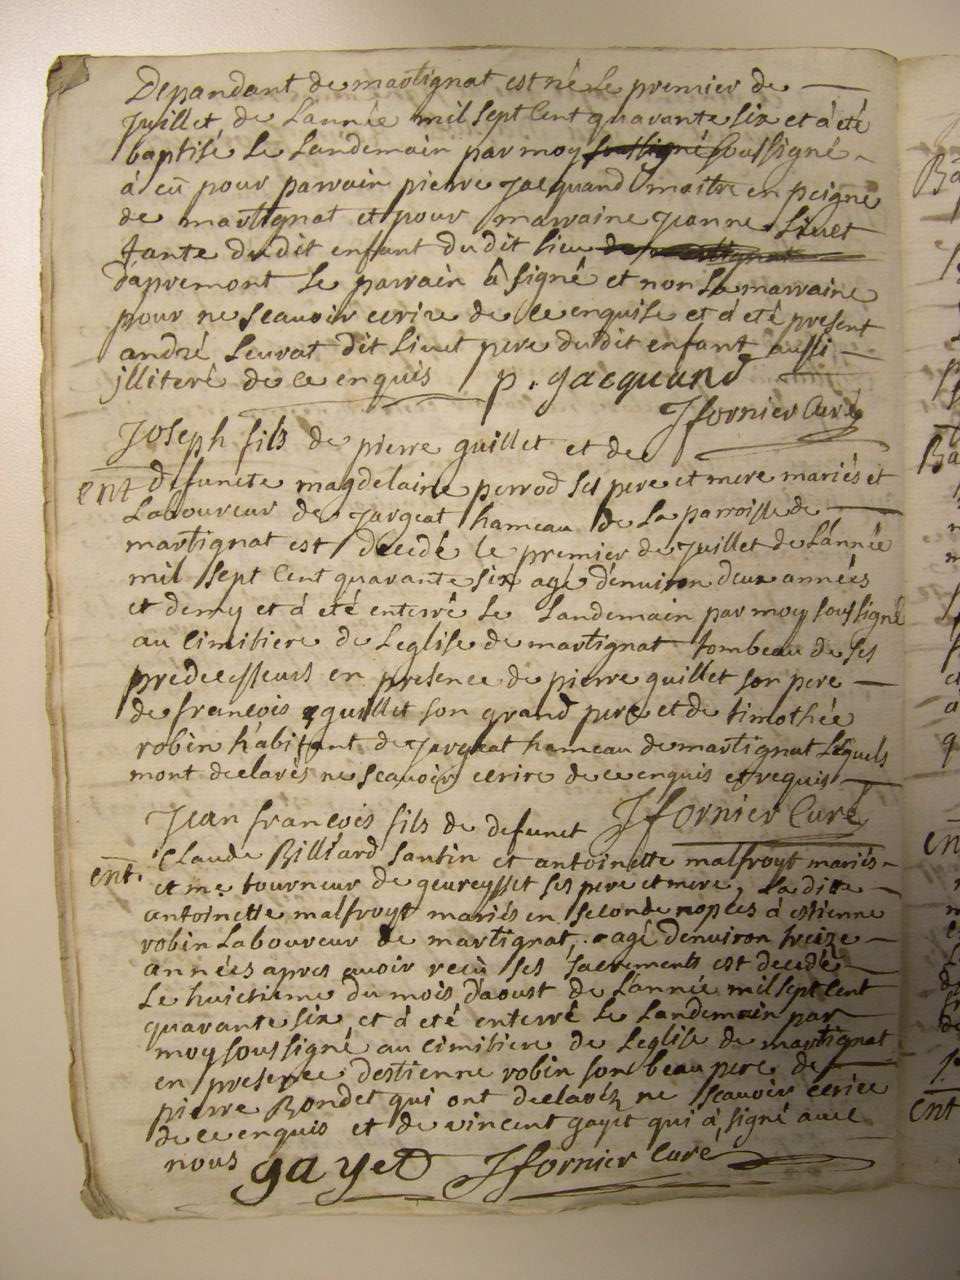 Dependant de martignat est né le premier de
Juillet de L'année mil sept Cent quarante six et à été
baptisé Le Landemain par moy soussigné
à eû pour parrain pierre Jacquand maitre en peigne
de martignat et pour marraine Jeanne Livet
tante du dit enfant du dit lieu
dapremont Le parrain â signé et non La marraine
pour ne scauoir ecrire de ce enquise et á eté present
andré Leurat dit Livet pere du dit enfant aussi
jlliteré de ce enquis p. Jacquand
Jffornier Curé
Joseph fils de pierre guillet et de
ent defuncte magdelaine perrod ses pere et mere mariés et
Laboureur de Jargeat hameau de La parroisse de
martignat est decedé le premier de Juillet de L'année
mil sept Cent quarante six agé d'enuiron deux années
et demy et á été enterré Le Landemain par moy soussigné
au cimitiere de Leglise de martignat tombeau de ses
predecesseurs en presence de pierre guillet son pere
de francois guillet son grand pere et de timothée
robin habitant de Jargeat hameau de martignat Lequels
mont declarés ne scauoir ecrire de ce enquis et requis
Jffornier Curé
Jean francois fils de defunct
ent. Claude Billiard santin et antoinette malfroyt mariés
et me tourneur de geureysset ses pere et mere, La ditte
antoinette malfroyt mariés en seconde nopces á estienne
robin Laboureur de martignat, agé d'enuiron treize
années apres auoir reçû ses sacrements est decedé
Le huictieme du mois d'aoust de L'année mil sept Cent
quarante six, et á été enterré Le Landemain par
moy soussigné au cimitiere de Leglise de martignat
en presence d'estienne robin son beau pere de
pierre Bondet qui ont declarés ne scauoir ecrire
de ce enquis et de vincent gayet qui à signé auec
nous gayet Jffornier Curé